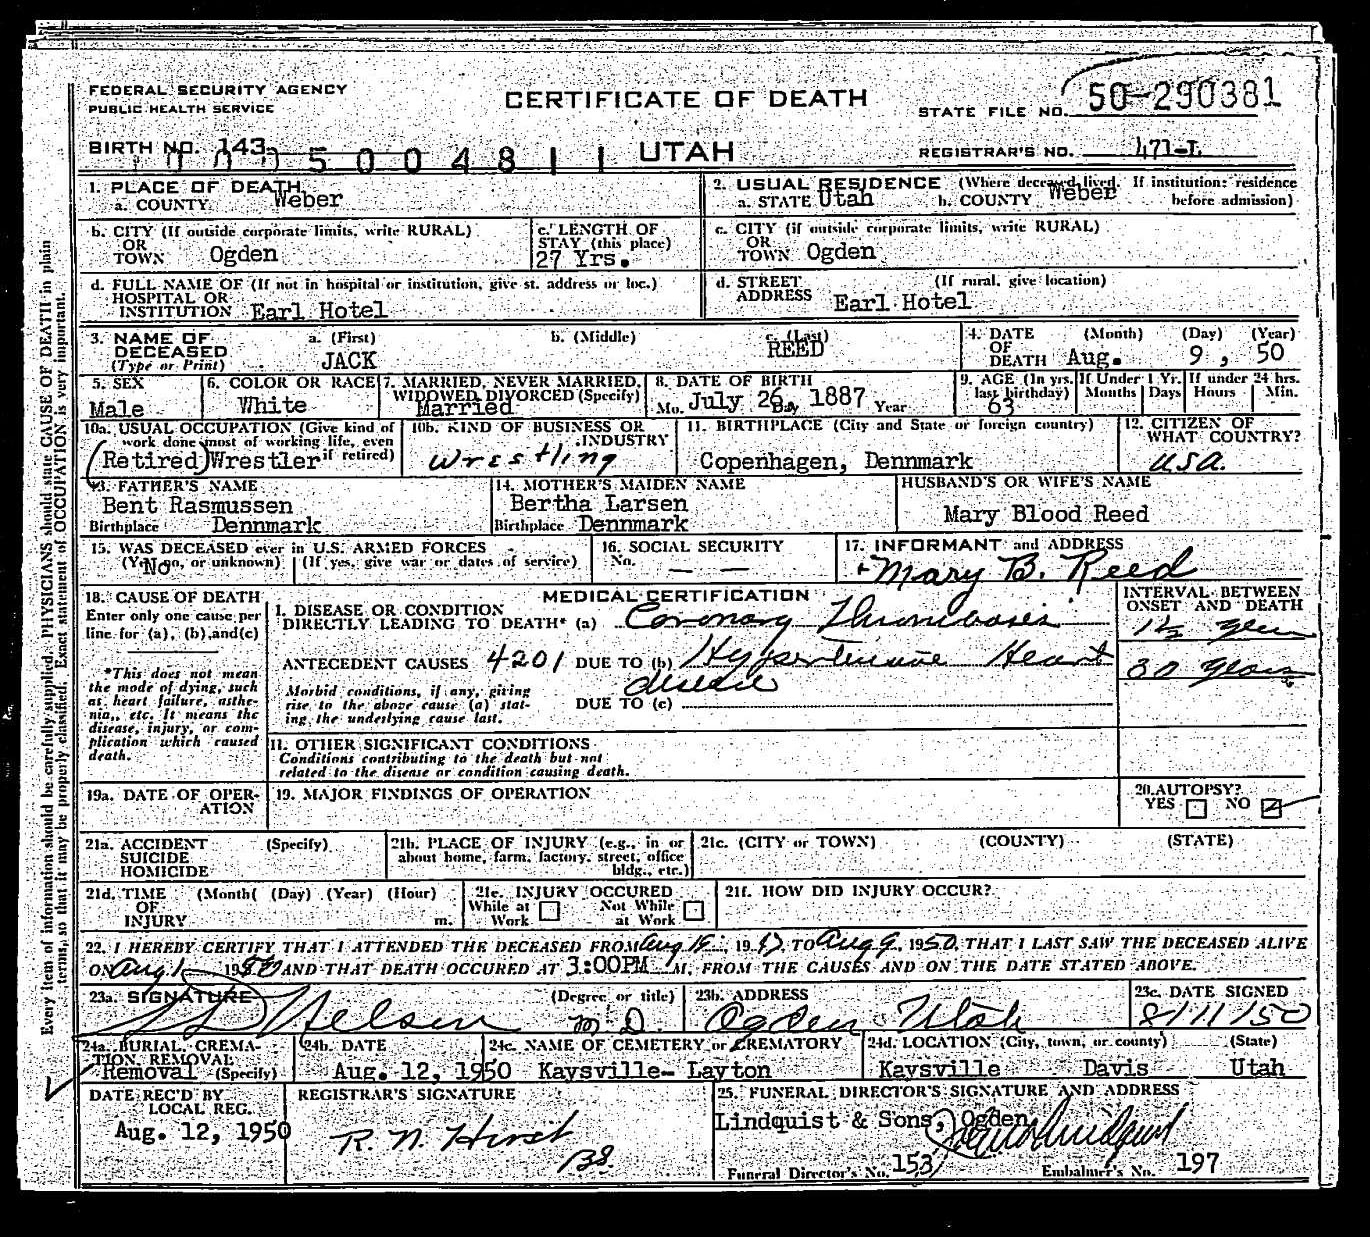 FEDERAL SECURITY AGENCY
PUBLIC HEALTH SERVICE
CERTIFICATE OF DEATH
STATE FILE NO. 50-290381
BIRTH NO. 143
005004811
UTAH
REGISTRAR'S NO. 471-L
1. PLACE OF DEATH
a. COUNTY Weber
2. USUAL RESIDENCE (Where deceased lived. If institution: residence before admission)
a. STATE Utah b. COUNTY Weber
b. CITY (If outside corporate limits, write RURAL)
OR
TOWN Ogden
c. LENGTH OF
STAY (this place)
27 Yrs.
c. CITY (if outside corporate limits, write RURAL)
OR
TOWN Ogden
d. FULL NAME OF (If not in hospital or institution, give st. address or loc.)
HOSPITAL OR
INSTITUTION Earl Hotel
d. STREET (If rural, give location)
ADDRESS Earl Hotel
3. NAME OF
DECEASED
(Type or Print)
a. (First) b. (Middle) c. (Last)
JACK REED
4. DATE (Month) (Day) (Year)
OF
DEATH Aug. 9, 50
5. SEX
Male
6. COLOR OR RACE
White
7. MARRIED, NEVER MARRIED,
WIDOWED DIVORCED (Specify)
Married
8. DATE OF BIRTH
Mo. July 26 Day 1887 Year
9. AGE (In yrs. last birthday)
63
If Under 1 Yr.
Months Days
If under 24 hrs.
Hours Min.
10a. USUAL OCCUPATION (Give kind of
work done most of working life, even
if retired)
(Retired) Wrestler
10b. KIND OF BUSINESS OR
INDUSTRY
Wrestling
11. BIRTHPLACE (City and State or foreign country)
Copenhagen, Dennmark
12. CITIZEN OF
WHAT COUNTRY?
USA.
13. FATHER'S NAME
Bent Rasmussen
Birthplace Dennmark
14. MOTHER'S MAIDEN NAME
Bertha Larsen
Birthplace Dennmark
HUSBAND'S OR WIFE'S NAME
Mary Blood Reed
15. WAS DECEASED ever in U.S. ARMED FORCES
(Yes, no, or unknown) (If yes, give war or dates of service)
No
16. SOCIAL SECURITY
No. — —
17. INFORMANT and ADDRESS
Mary B. Reed
18. CAUSE OF DEATH
Enter only one cause per
line for (a), (b), and (c)
*This does not mean
the mode of dying, such
as heart failure, asthe-
nia, etc. It means the
disease, injury, or com-
plication which caused
death.
MEDICAL CERTIFICATION
I. DISEASE OR CONDITION
DIRECTLY LEADING TO DEATH* (a) Coronary Thrombosis
ANTECEDENT CAUSES 4201 DUE TO (b) Hypertensive Heart
disease
Morbid conditions, if any, giving
rise to the above cause (a) stat-
ing the underlying cause last.
DUE TO (c)
INTERVAL BETWEEN
ONSET AND DEATH
1½
30 years
II. OTHER SIGNIFICANT CONDITIONS
Conditions contributing to the death but not
related to the disease or condition causing death.
19a. DATE OF OPER-
ATION
19. MAJOR FINDINGS OF OPERATION
20. AUTOPSY?
YES NO
21a. ACCIDENT (Specify)
SUICIDE
HOMICIDE
21b. PLACE OF INJURY (e.g., in or
about home, farm, factory, street, office
bldg., etc.)
21c. (CITY or TOWN) (COUNTY) (STATE)
21d. TIME (Month) (Day) (Year) (Hour)
OF
INJURY m.
21e. INJURY OCCURED
While at Work Not While at Work
21f. HOW DID INJURY OCCUR?
22. I HEREBY CERTIFY THAT I ATTENDED THE DECEASED FROM Aug 18, 19 TO Aug 9, 1950, THAT I LAST SAW THE DECEASED ALIVE
ON Aug 1 1950 AND THAT DEATH OCCURED AT 3:00PM M, FROM THE CAUSES AND ON THE DATE STATED ABOVE.
23a. SIGNATURE (Degree or title)
Nelsen M D.
23b. ADDRESS
Ogden Utah
23c. DATE SIGNED
8/11/50
24a. BURIAL, CREMA-
TION REMOVAL
Removal (Specify)
24b. DATE
Aug. 12, 1950
24c. NAME OF CEMETERY or CREMATORY
Kaysville- Layton
24d. LOCATION (City, town, or county) (State)
Kaysville Davis Utah
DATE REC'D BY
LOCAL REG.
Aug. 12, 1950
REGISTRAR'S SIGNATURE
R. N. Hirst
BS
25. FUNERAL DIRECTOR'S SIGNATURE AND ADDRESS
Lindquist & Sons, Ogden
Funeral Director's No. 153 Embalmer's No. 197
Every item of information should be carefully supplied. PHYSICIANS should state CAUSE OF DEATH in plain
terms, so that it may be properly classified. Exact statement of OCCUPATION is very important.